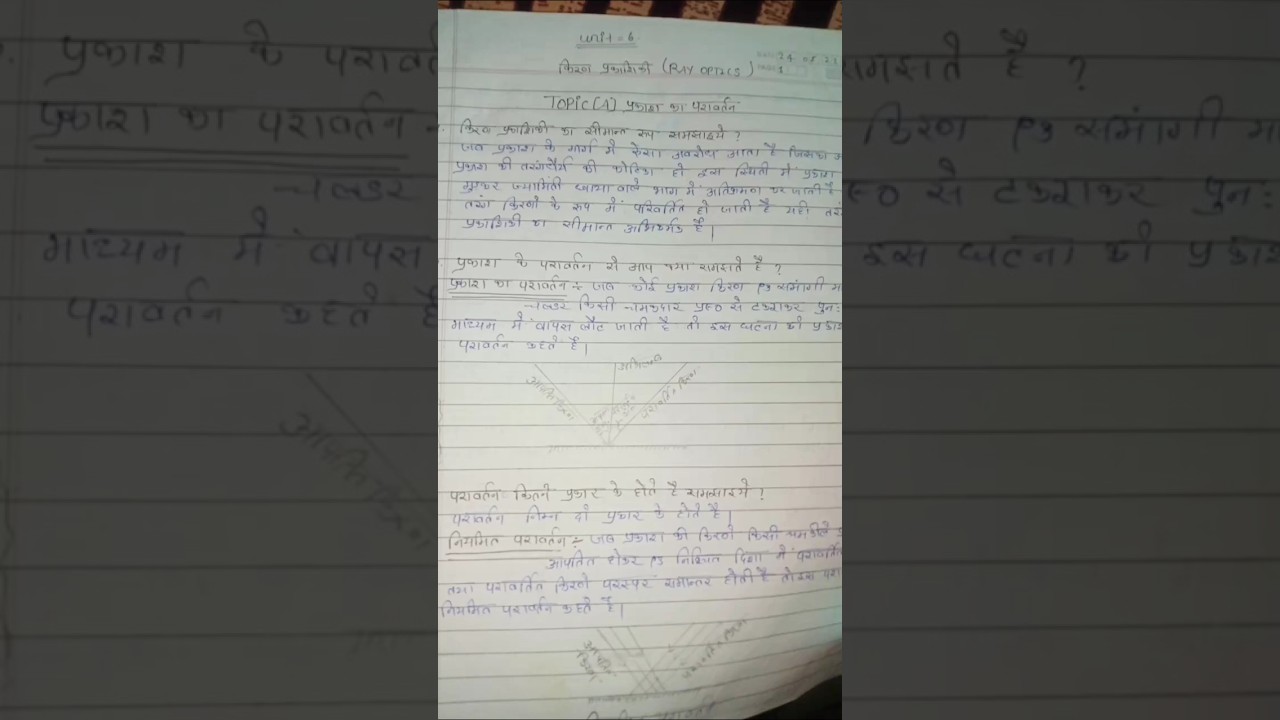 Unit = 6
किरण प्रकाशिकी (RAY OPTICS)
TOPIC [A] प्रकाश का परावर्तन
किरण प्रकाशिकी का सीमान्त रूप समझाइये ?
जब प्रकाश के मार्ग में ऐसा अवरोध आता है जिसका
प्रकाश की तरंगदैर्य की कोटिका हो इस स्थिती में प्रकाश
मुड़कर ज्यामिती छाया वाले भाग में अतिक्रमण कर जाती है
तरंग किरणों के रूप में परिवर्तित हो जाती है यही
प्रकाशिकी का सीमान्त है।
प्रकाश के परावर्तन से आप क्या समझते है ?
प्रकाश का परावर्तन ÷ जब कोई प्रकाश किरण एक समांगी
चलकर किसी चमकदार पृष्ठ से टकराकर पुन:
माध्यम में वापस लौट जाती है तो इस घटना को
परावर्तन कहते है।
अभिलम्ब
आपतित किरण
परावर्तित किरण
परावर्तन कितने प्रकार के होते है समझाइये ?
परावर्तन निम्न दो प्रकार के होते है।
नियमित परावर्तन ÷ जब प्रकाश की किरणे किसी चमकीले
आपतित होकर एक निश्चित दिशा में
तथा परावर्तित किरणे परस्पर समान्तर होती है तो इस
नियमित परावर्तन कहते है।
आपतित किरण
परावर्तित किरण